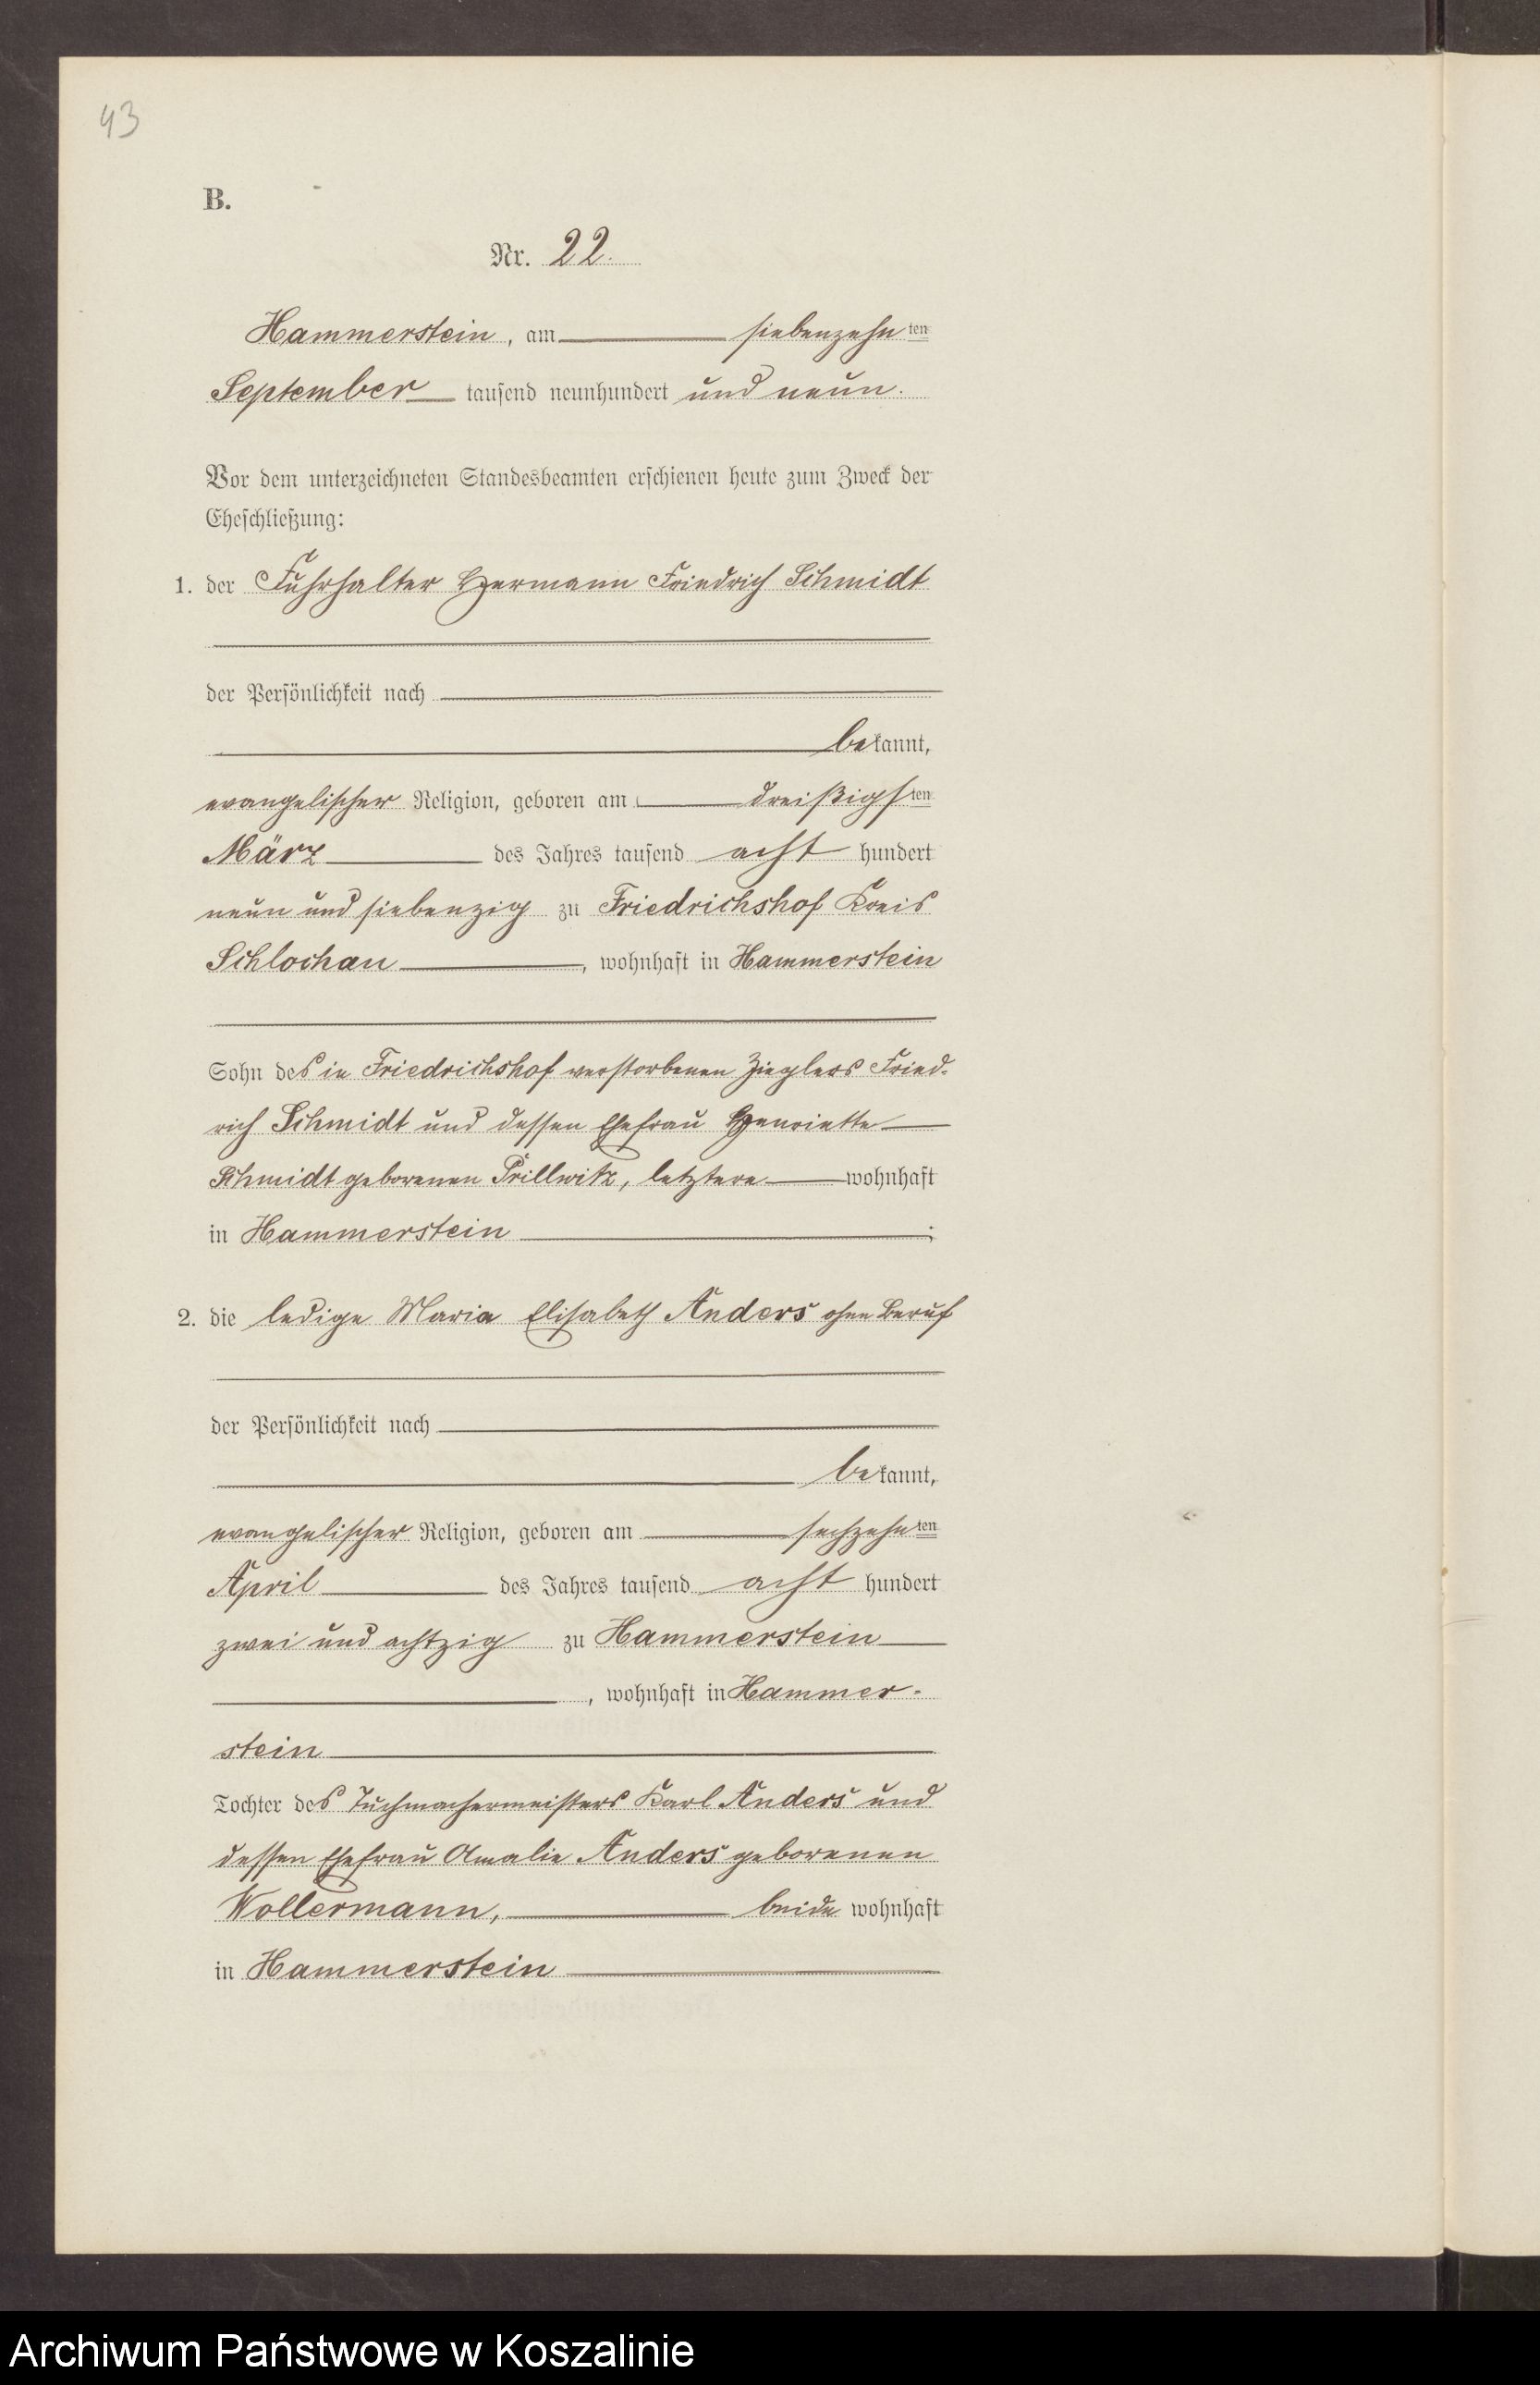 43
B.
Nr. 22.
Hammerstein, am siebenzehnten
September tausend neunhundert und neun.
Vor dem unterzeichneten Standesbeamten erschienen heute zum Zweck der
Eheschließung:
1. der Fuhrhalter Hermann Friedrich Schmidt
der Persönlichkeit nach
bekannt,
evangelischer Religion, geboren am dreißigsten
März des Jahres tausend acht hundert
neun und siebenzig zu Friedrichshof Kreis
Schlochau, wohnhaft in Hammerstein
Sohn des in Friedrichshof verstorbenen Zieglers Fried-
rich Schmidt und dessen Ehefrau Henriette
Schmidt geborenen Prillwitz, letztere wohnhaft
in Hammerstein;
2. die ledige Maria Elisabeth Anders ohne Beruf
der Persönlichkeit nach
bekannt,
evangelischer Religion, geboren am sechzehnten
April des Jahres tausend acht hundert
zwei und achtzig zu Hammerstein
, wohnhaft in Hammer-
stein
Tochter des Tuchmachermeisters Karl Anders und
dessen Ehefrau Amalie Anders geborenen
Wollermann, beide wohnhaft
in Hammerstein
Archiwum Państwowe w Koszalinie